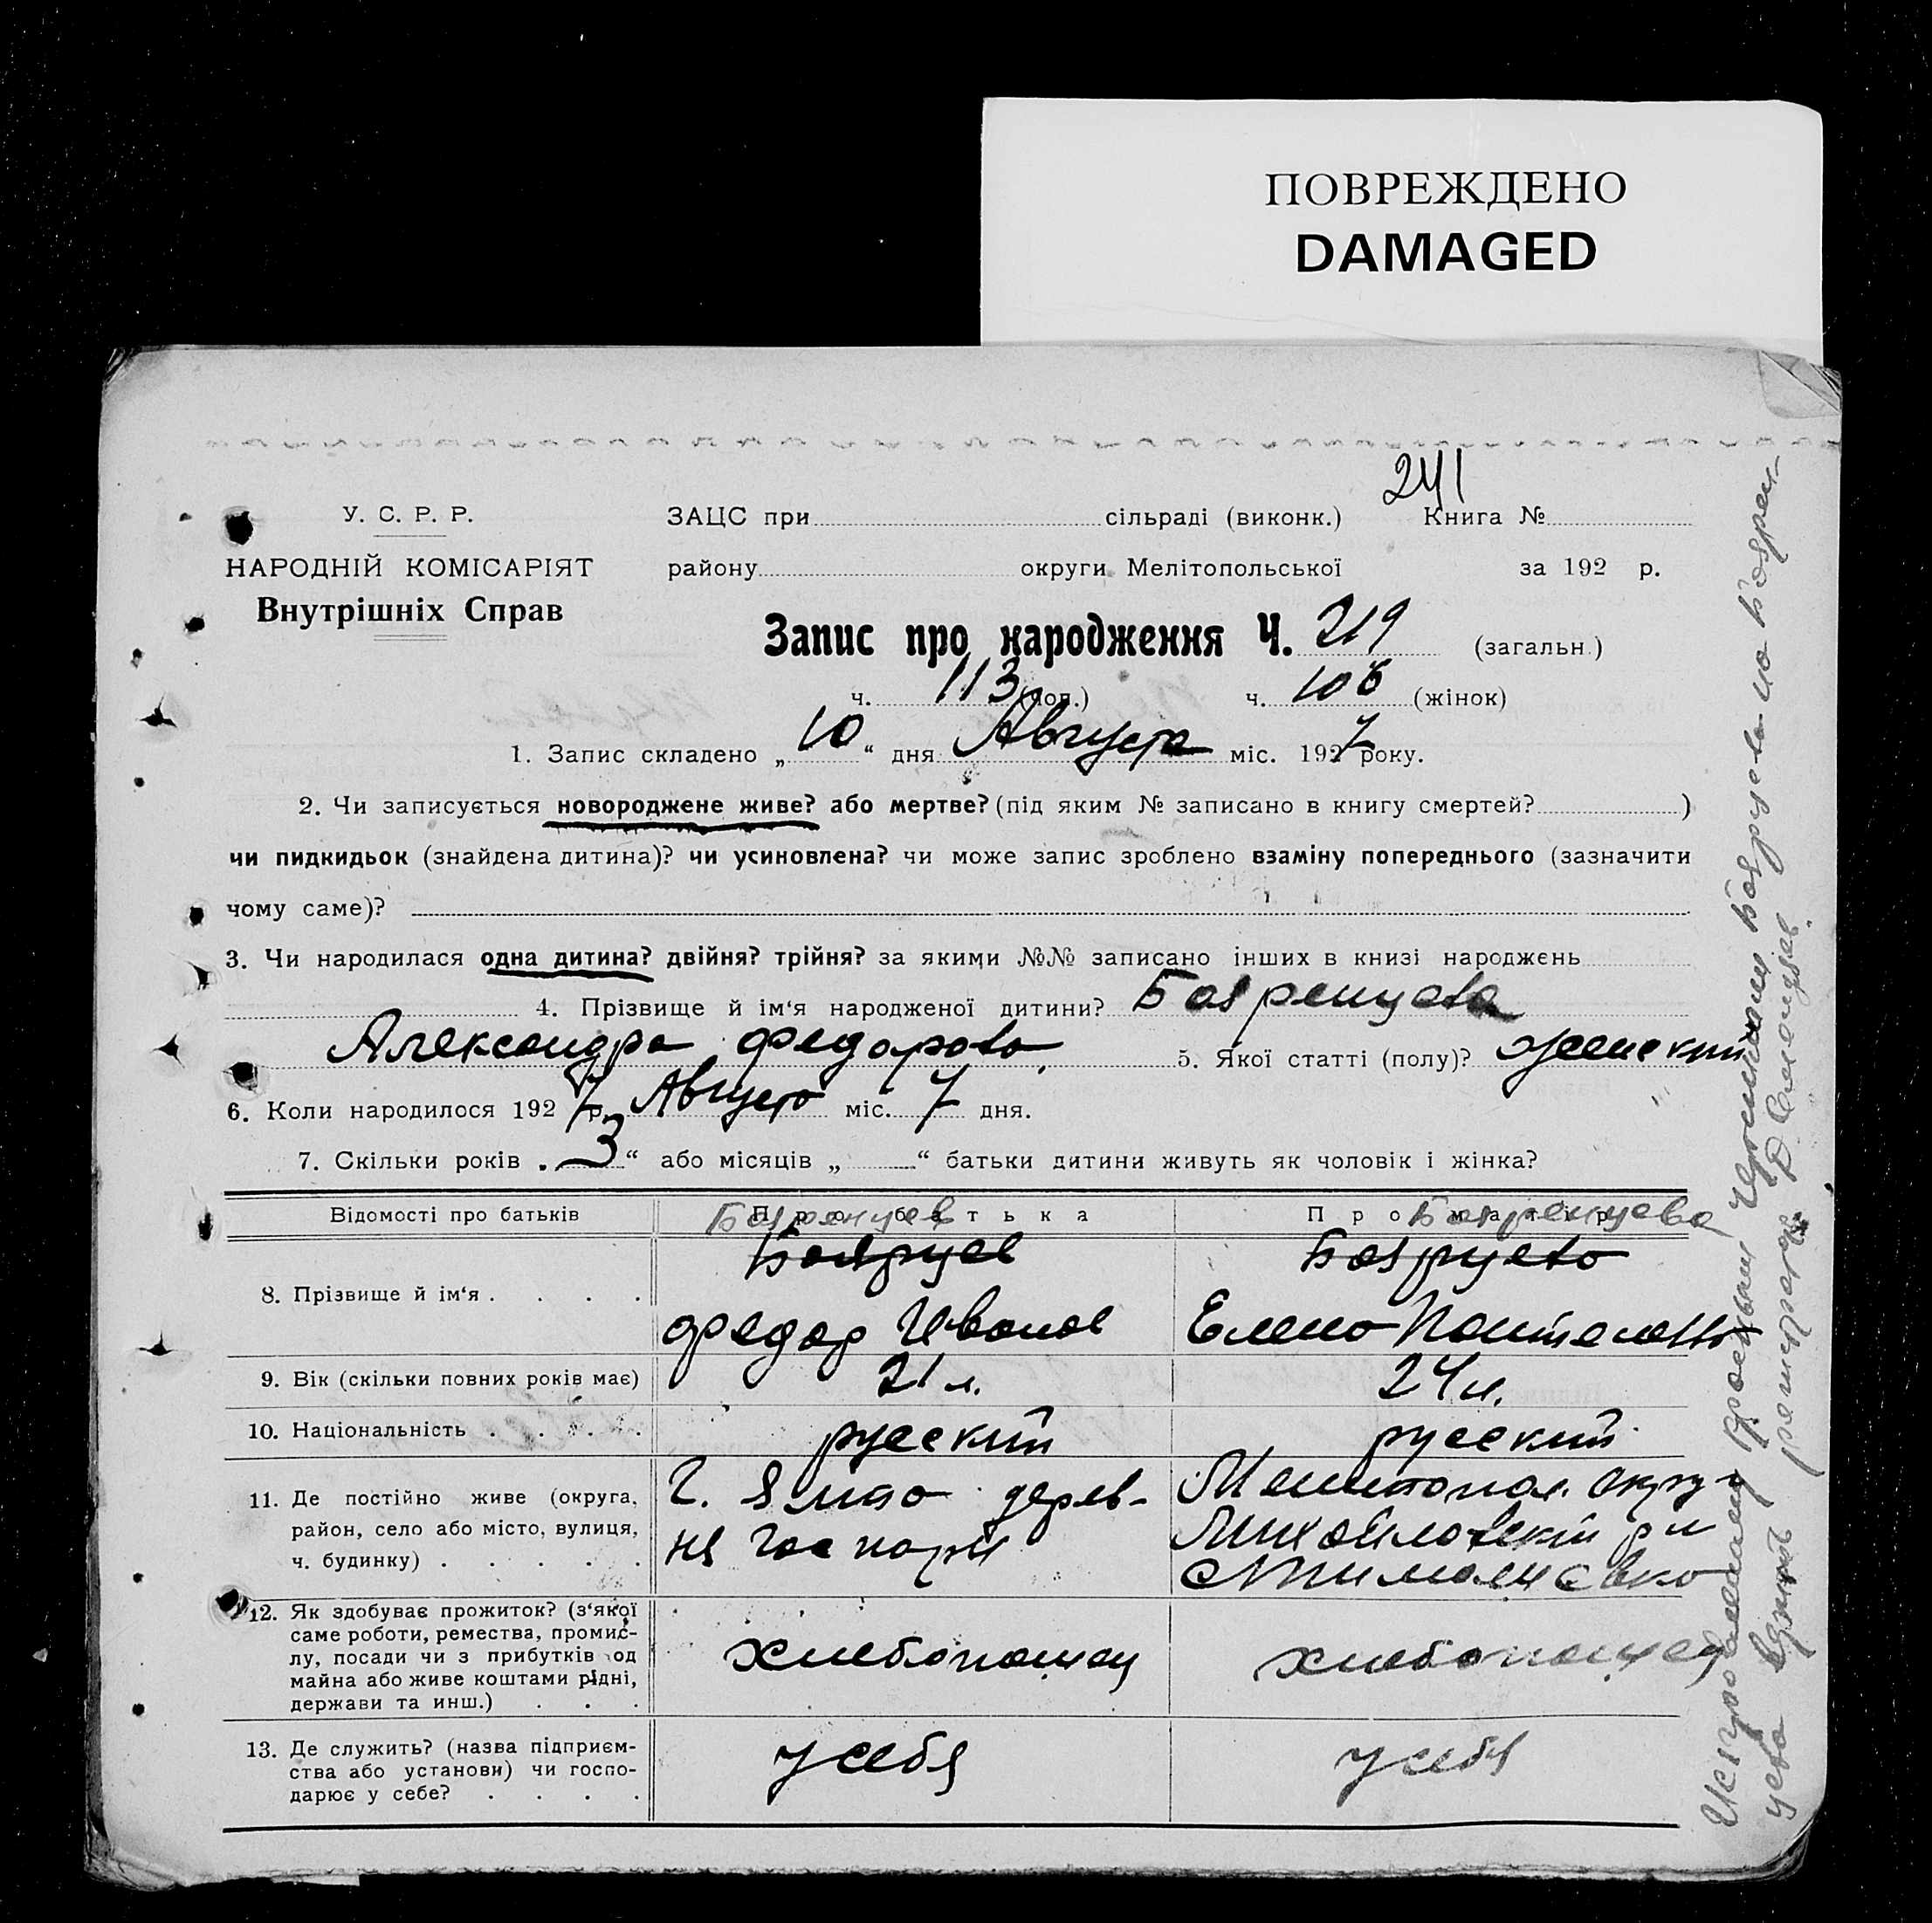 ПОВРЕЖДЕНО
DAMAGED
241
У. С. Р. Р.
НАРОДНІЙ КОМІСАРІЯТ
Внутрішніх Справ
ЗАЦС при сільраді (виконк.) Книга №
району округи Мелітопольської за 192 р.
Запис про народження Ч. 219 (загальн.)
ч. 113 (чол.) ч. 106 (жінок)
1. Запис складено „ 10 “ дня Августа міс. 1927 року.
2. Чи записується новороджене живе? або мертве? (під яким № записано в книгу смертей? )
чи пидкидьок (знайдена дитина)? чи усиновлена? чи може запис зроблено взаміну попереднього (зазначити
чому саме)?
3. Чи народилася одна дитина? двійня? трійня? за якими №№ записано інших в книзі народжень
4. Прізвище й ім‘я народженої дитини? Бояренцева
Александра Федорова. 5. Якої статті (полу)? женский
6. Коли народилося 1927 р. Августа міс. 7 дня.
7. Скільки років „ 3 “ або місяців „ “ батьки дитини живуть як чоловік і жінка?
Відомості про батьків Про батька Про матір
Бояренцев Бояренцева
Боярцев Боярцева
8. Прізвище й ім‘я . . . .
Федор Иванов Елена
9. Вік (скільки повних років має) 21 л. 24 л.
10. Національність . . . . русский русский
11. Де постійно живе (округа, район, село або місто, вулиця, ч. будинку) . . . . .
г. Ялта дерев-
ня Гаспари
Мелитопол. округ
Михайловский р н
с Тимашевка
12. Як здобуває прожиток? (з‘якої
саме роботи, ремества, промис-
лу, посади чи з прибутків од
майна або живе коштами рідні,
держави та инш.) . . .
хлебопашец хлебопашец
13. Де служить? (назва підприєм-
ства або установи) чи госпо-
дарює у себе? . . . .
у себя у себя
Исправленному красными чернилами Боярцева на Боярен-
цева верить регистратор